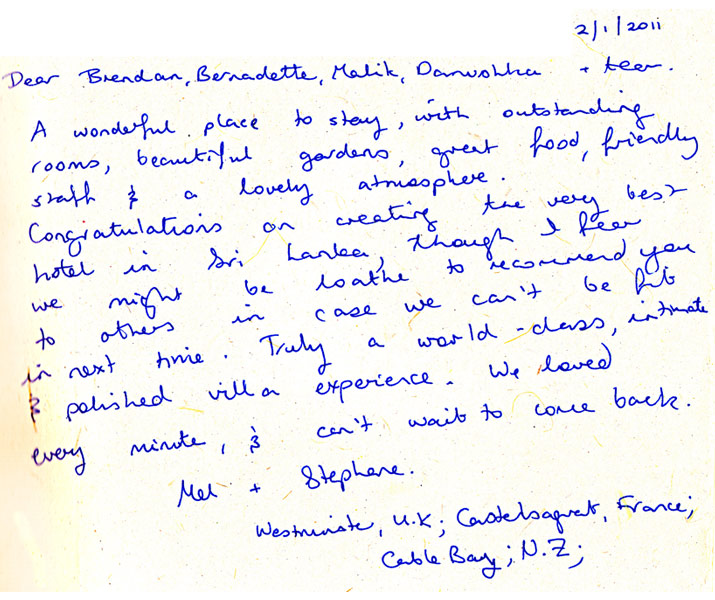 2/1/2011
Dear Brendan, Bernadette, Malik, Danushka + team.
A wonderful place to stay, with outstanding
rooms, beautiful gardens, great food, friendly
staff & a lovely atmosphere.
Congratulations on creating the very best
hotel in Sri Lanka, though I fear
we might be loathe to recommend you
to others in case we can't be fit
in next time. Truly a world-class, intimate
& polished villa experience. We loved
every minute, & can't wait to come back.
Mel + Stephane.
Westminste, U.K; Castelsagrat, France;
Cable Bay; N.Z;